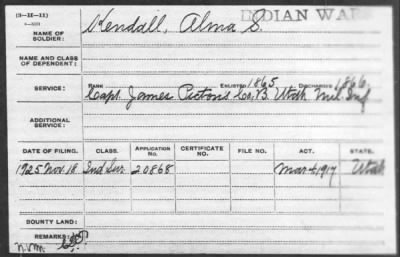 (3-II-II)
INDIAN WAR
NAME OF SOLDIER: Kendall, Alma S.
NAME AND CLASS OF DEPENDENT:
RANK ENLISTED 1865 DISCHARGED 1866
SERVICE: Capt. James Picton's Co. B. Utah Mil. Inf
ADDITIONAL SERVICE:
DATE OF FILING. CLASS. APPLICATION No. CERTIFICATE No. FILE NO. ACT. STATE.
1925 Nov. 18 Ind Sur. 20868 Mar 4 1917 Utah
BOUNTY LAND:
REMARKS: